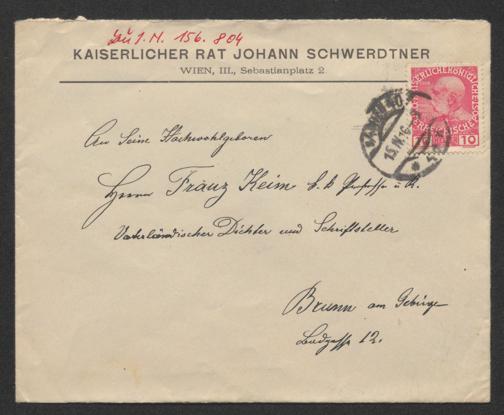 Zu I.N. 156.804
KAISERLICHER RAT JOHANN SCHWERDTNER
WIEN, III., Sebastianplatz 2
KAISERLICHE KÖNIGLICHE ÖSTERREICHISCHE
10
An Seine Hochwohlgeboren
Herrn Franz Keim k.k. Professor u. K.
Vaterländischer Dichter und Schriftsteller
Brunn am Gebirge
Badgasse 12.